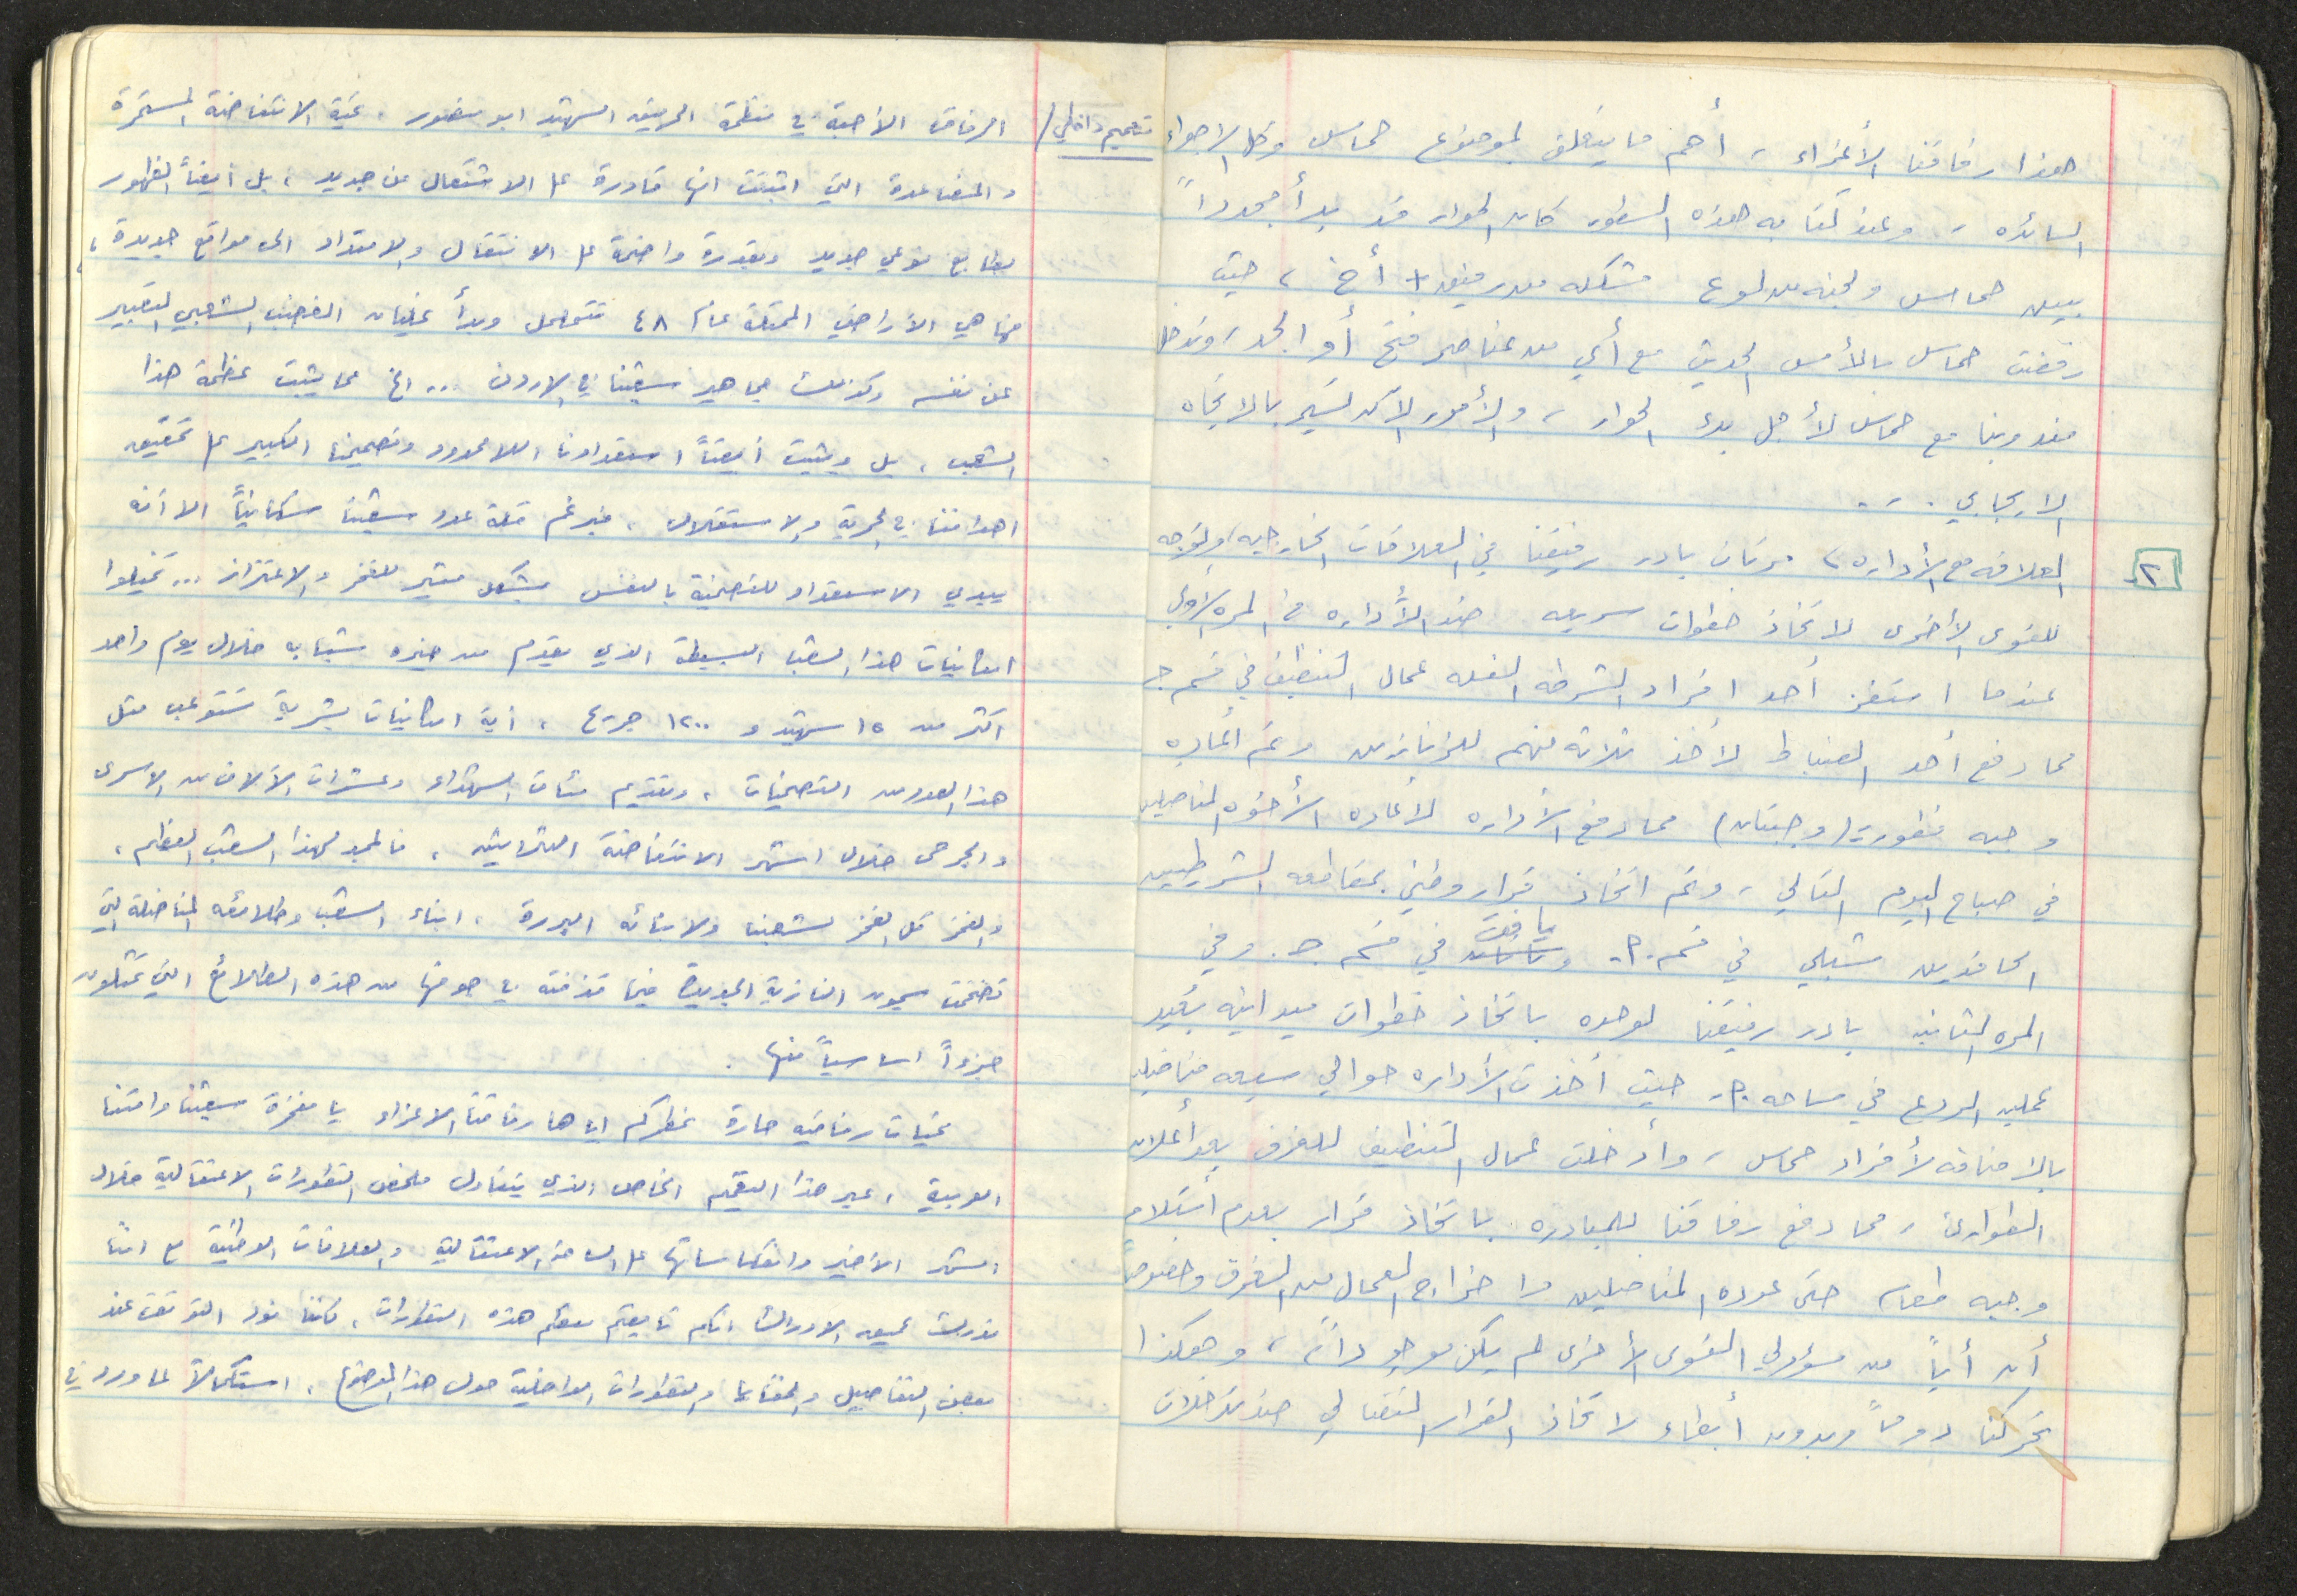 هذا رفاقنا الأعزاء ، أهم ما يتعلق بموضوع حماس وكل الاجواء
السائده ، وعند كتابه هذه السطور كان الحوار قد بدأ مجدداً
بين حماس ولجنه من مشكله من رفيق + أخ ، حيث
رفضت حماس بالأمس الحديث مع أي من عناصر فتح أو الجهاد وتدخل
مندوبنا مع حماس لأجل بدء الحوار ، والأمور الآن تسير بالاتجاه
الايجابي . . .
٢ العلاقه مع الأداره ، مرتان بادر رفيقنا في العلاقات الخارجيه والتوجه
للقوى الأخرى لاتخاذ خطوات سريعه ضد الأداره في المره الأولى
عندما استفز أحد افراد الشرطه عمال التنظيف في قسم ج
مما دفع أحد الضباط لأخذ ثلاثه منهم للزنازين وتم أعاده
وجبه فطور (وجبتان) مما دفع الأداره لأعاده الأخوه المناضلين
في صباح اليوم التالي ، وتم اتخاذ قرار وطني بمقاطعه الشرطيين
الحاقدين شبلي في قسم ج. و يافت في قسم ج. وفي
المره الثانيه بادر رفيقنا لوحده باتخاذ خطوات ميدانيه بعيد
عمليه الردع في ساحه ج، حيث أخذت الأداره حوالي سبعه مناضلين
بالاضافه لأفراد حماس ، وأدخلت عمال التنظيف للغرف بعد أعلان
الطوارئ ، مما دفع رفاقنا للمبادره باتخاذ قرار بعدم أستلام
وجبه طعام حتى عوده المناضلين واخراج العمال من الغرف وخصوصاً
أن أياً من مسؤولي القوى الأخرى لم يكن موجوداً ، وهكذا
تحركنا دوماً وبدون أبطاء لاتخاذ القرار النضالي ضد تدخلات
تعميم داخلي / الرفاق الأحبة في منظمة الرفيق الشهيد ابو منصور ، تحية الانتفاضة المستمرة
والمتصاعدة التي اثبتت انها قادرة على الاشتعال من جديد ، بل أيضاً الظهور
بطابع نوعي جديد وبقدرة واضحة على الانتقال والامتداد الى مواقع جديدة ،
فها هي الأراضي المحتلة عام ٤٨ تتململ وبدأ غليان الغضب الشعبي للتعبير
عن نفسه وكذلك جماهير شعبنا في الاردن ... الخ مما يثبت عظمة هذا
الشعب ، بل ويثبت أيضاً استعدادنا اللامحدود وتصميمنا الكبير على تحقيق
اهدافنا في الحرية والاستقلال ، فبرغم قلة عدد شعبنا سكانياً الا أنه
يبدي الاستعداد للتضحية بالنفس بشكل مثير للفخر والاعتزاز ... تخيلوا
امكانيات هذا الشعب البسيطة الذي يقدم من خيره شبابه خلال يوم واحد
اكثر من ١٥ شهيد و ١٢٠٠ جريح ، أية امكانيات بشرية تستوعب مثل
هذا العدد من التضحيات ، وتقديم مئات الشهداء وعشرات الآلاف من الاسرى
والجرحى خلال اشهر الانتفاضة الثلاثين ، فالمجد لهذا الشعب العظيم ،
والفخر كل الفخر لشعبنا ولابنائه البررة ، ابناء الشعب وطلائعه المناضلة التي
تضخمت سجون النازية الجديدة فيما قذفته في جوفها من هذه الطلائع التي تمثلون
جزءاً اساسياً منها .
تحيات رفاقيه حارة نمطركم اياها رفاقنا الاعزاء يا مفخرة شعبنا وامتنا
العربية ، عبر هذا التعميم الخاص الذي يتناول ملخص التطورات الاعتقالية خلال
الشهر الأخير وانعكاساتها على الساحة الاعتقالية والعلاقات الوطنية مع اننا
ندرك عميق الادراك انكم تابعتم معظم هذه التطورات ، لكننا نود التوقف عند
بعض التفاصيل والخفايا والتطورات الداخلية حول هذا الموضوع ، استكمالاً لما ورد في